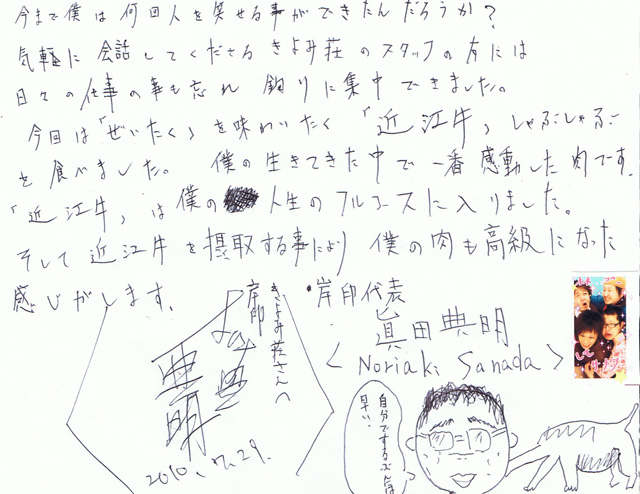 今まで僕は何回人を笑せる事ができたんだろうか?
気軽に会話してくださるきよみ荘のスタッフの方には
日々の仕事の事も忘れ 釣りに集中できました。
今回は「ぜいたく」を味わいたく「近江牛」しゃぶしゃぶ
を食べました。僕の生きてきた中で一番感動した肉です。
「近江牛」は僕の人生のフルコースに入りました。
そして近江牛を摂取する事により 僕の肉も高級になった
感じがします。
・岸印代表
眞田典明
<Noriaki Sanada>
きよみ荘さんへ
岸印
2010.
29.
自分でするぶんは
早い。